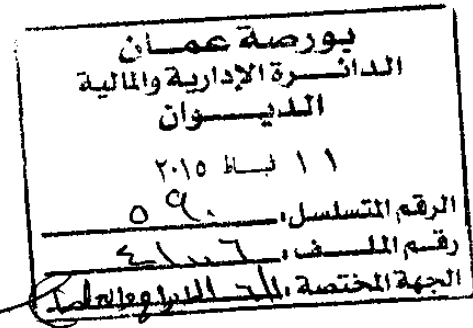 بورصة عمان
الدائرة الإدارية والمالية
الديوان
١١ شباط ٢٠١٥
الرقم المتسلسل: ٥٩٠
رقم الملف:
الجهة المختصة: